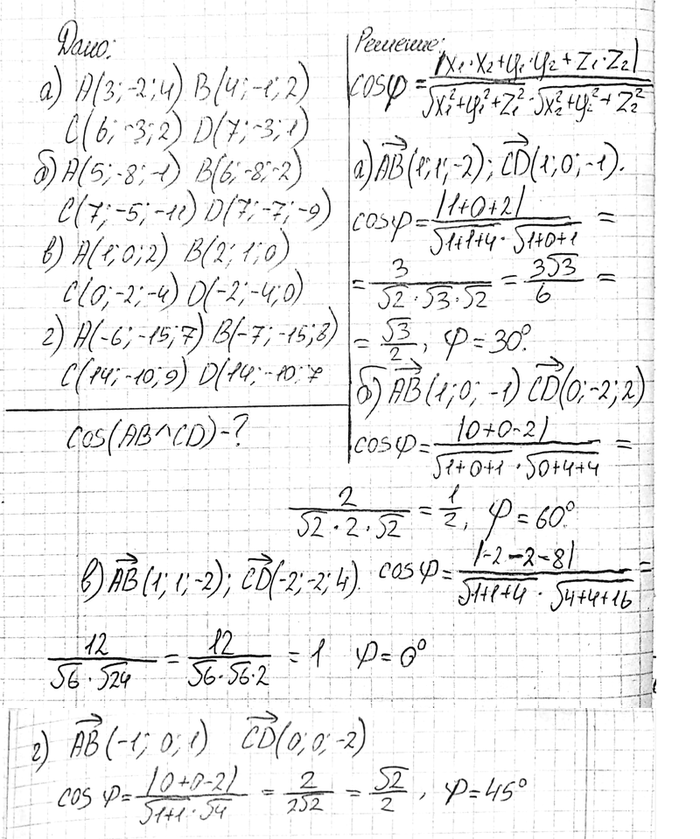 Дано:
а) A(3;-2;4) B(4;-1;2)
C(6;-3;2) D(7;-3;1)
б) A(5;-8;-1) B(6;-8;-2)
C(7;-5;-11) D(7;-7;-9)
в) A(1;0;2) B(2;1;0)
C(0;-2;-4) D(-2;-4;0)
г) A(-6;-15;7) B(-7;-15;8)
C(14;-10;9) D(14;-10;7
cos(AB^CD)-?
Решение:
cosφ = |x₁·x₂+y₁·y₂+z₁·z₂| / √x₁²+y₁²+z₁² · √x₂²+y₂²+z₂²
а) AB(1;1;-2); CD(1;0;-1).
cosφ = |1+0+2| / √1+1+4 · √1+0+1 =
= 3 / √2·√3·√2 = 3√3 / 6 =
= √3 / 2, φ=30°.
б) AB(1;0;-1) CD(0;-2;2)
cosφ = |0+0-2| / √1+0+1 · √0+4+4 =
2 / √2·2·√2 = 1/2, φ=60°.
в) AB(1;1;-2); CD(-2;-2;4). cosφ = |-2-2-8| / √1+1+4 · √4+4+16 =
12 / √6·√24 = 12 / √6·√6·2 = 1 φ=0°
г) AB(-1;0;1) CD(0;0;-2)
cos φ = |0+0-2| / √1+1·√4 = 2 / 2√2 = √2 / 2, φ=45°